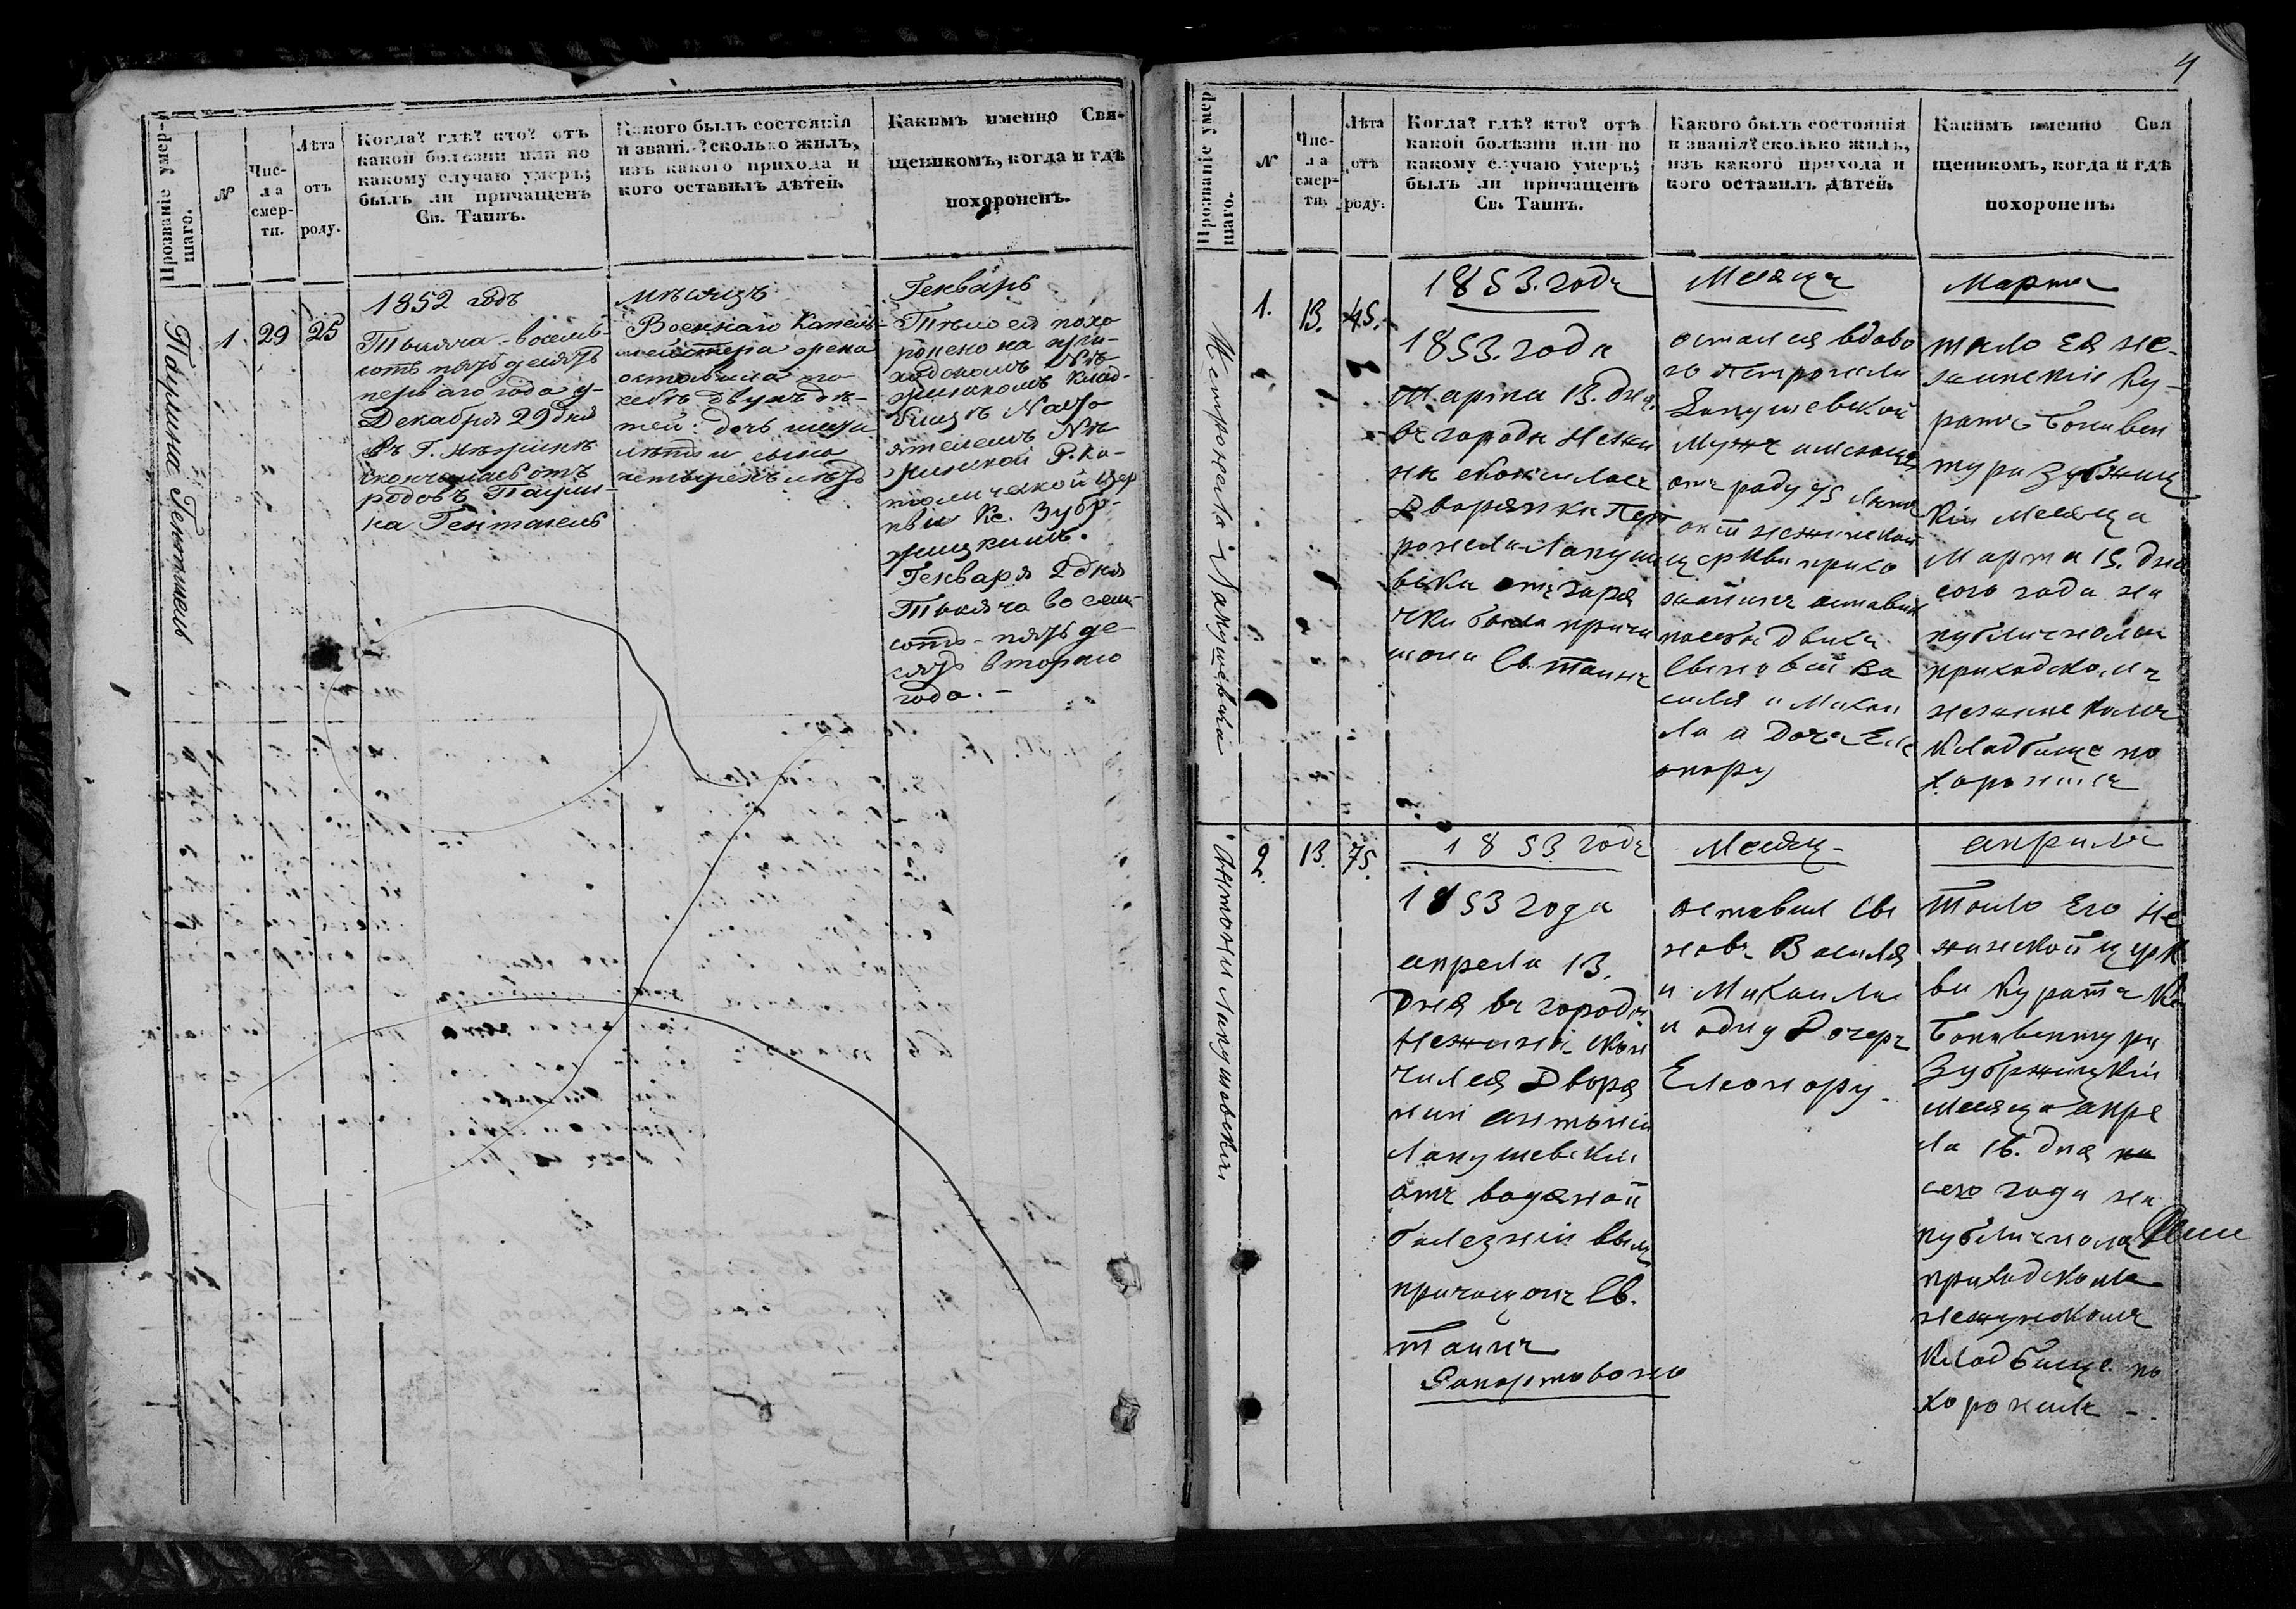 Прозваніе умер-
шаго.
№
Чис-
ла
смер-
ти.
Лѣта
отъ
роду.
Когда? гдѣ? кто? отъ
какой болѣзни или по
какому случаю умеръ;
былъ ли причащенъ
Св. Таинъ.
Какого былъ состоянія
и званія? сколько жилъ,
изъ какого прихода и
кого оставилъ дѣтей.
Какимъ именно Свя-
щеникомъ, когда и гдѣ
похороненъ.
Паулина Гентшель
1
29
25
1852 годъ
Тысяча-восемь-
сотъ пятьдесятъ
перваго года
Декабря 29 дня
въ Г. Нѣжинѣ
скончалась отъ
родовъ Паули-
на Гентшель
мѣсяцъ
Военнаго Капель-
мейстера жена
оставила по
себѣ двухъ дѣ-
тей: дочь шести
лѣтъ и сына
четырехъ лѣтъ
Генварь
Тѣло ея похо
ронено на при-
ходскомъ Нѣ-
жинскомъ клад-
бищѣ Насто
ятелемъ Нѣ-
жинской Р. Ка-
толической Цер
кви Кс. Зубр-
жицкимъ.
Генваря 2 дня
Тысяча восем-
сотъ-пятьде-
сятъ втораго
года. -
4
Прозваніе умер
шаго.
№
Чис-
ла
смер-
ти.
Лѣта
отъ
роду.
Когда? гдѣ? кто? отъ
какой болѣзни или по
какому случаю умеръ;
былъ ли причащенъ
Св. Таинъ.
Какого былъ состоянія
и званія? сколько жилъ,
изъ какого прихода и
кого оставилъ дѣтей.
Какимъ именно Свя
щеникомъ, когда и гдѣ
похороненъ.
Петронела Лапушевска
1.
13.
45.
1853. годъ
1853. года
Марта 13. дня
въ городѣ Нежи
нѣ скончилась
Дворянка Пет
ронела Лапуше
вска отъ горя
чки была прича
щона Св. Таинъ
Месяцъ
остался вдове
го Петронели
Лапушевской
Мужъ имеющи
отъ роду 75 летъ
нежинской
церкви прихо
жанинъ оставил
посебѣ двихъ
Сыновей Ва
силя и Михаи
ла и дочъ Еле
онору
Марта
тело Ея не-
жинскій Ку-
ратъ Бонавен
тура Зубжиц
кій Месяца
Марта 15. дня
сего года на
публичномъ
приходскомъ
нежинскомъ
кладбище по
хоронилъ
Антони Лапушовскій
2.
13.
75.
1853 годъ
1853 года
апреля 13.
Дня въ городѣ
Нежинѣ скон
чился Дворя
нин антоній
Лапушевскій
отъ водяной
болезніи былъ
причащонъ Св.
Таинъ
Рапортовано
Месяц-
оставил Сы
новъ Василя
и Михаила
и одну Дочеръ
Елеонору.
априль
Тоило Его Не
жинской церк
ви Куратъ Кс
Бонавентура
Зубржицкій
месяца апре
ля 16. дня на
сего года на
публичномъ
приходскомъ
нежинскомъ
кладбище по
хоронилъ -